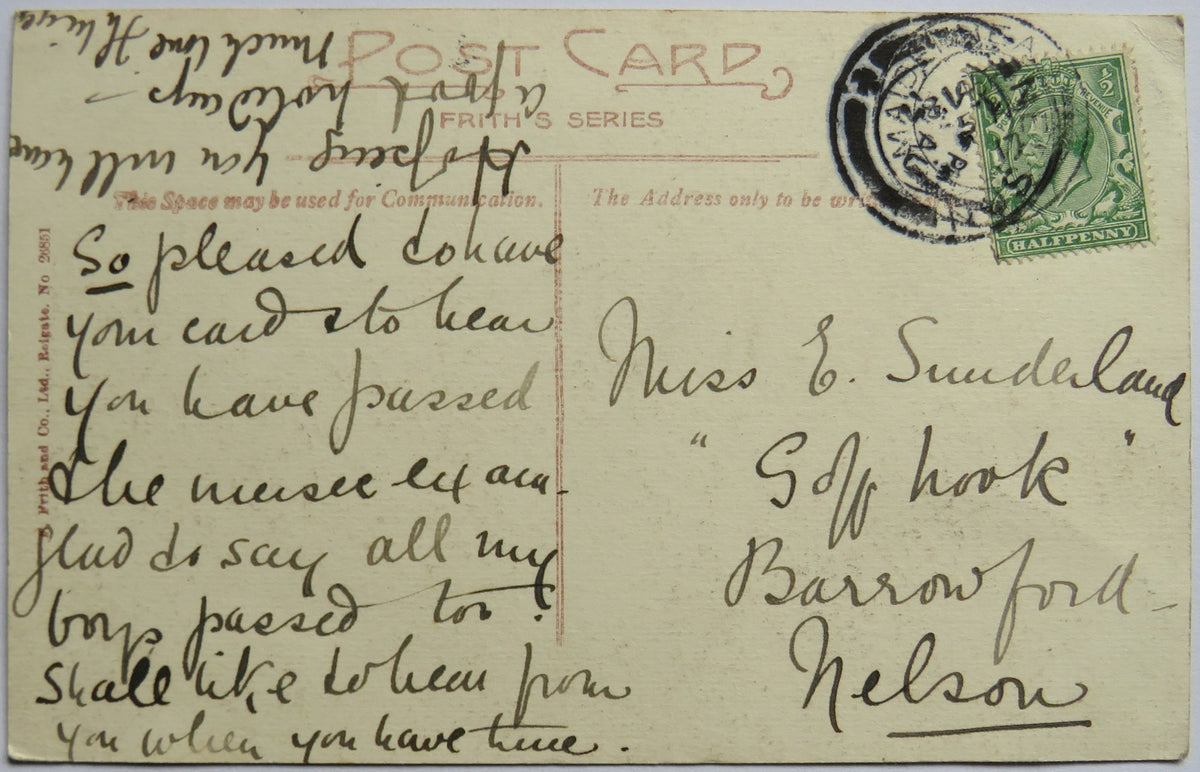 POST CARD
FRITH'S SERIES
This Space may be used for Communication.
The Address only to be
HALFPENNY
F. Frith and Co., Ltd., Reigate. No 26851
So pleased to have
your card & to hear
you have passed
the music exam -
glad to say all my
boys passed too!
Shall like to hear from
you when you have time.
Hoping you will have
a good holidays -
Much love
Miss E. Sunderland
" hook "
Barrowford -
Nelson